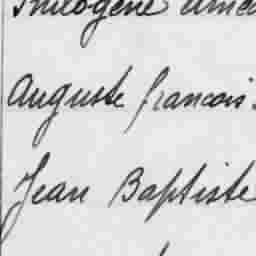 Philogène
Auguste francois
Jean Baptiste